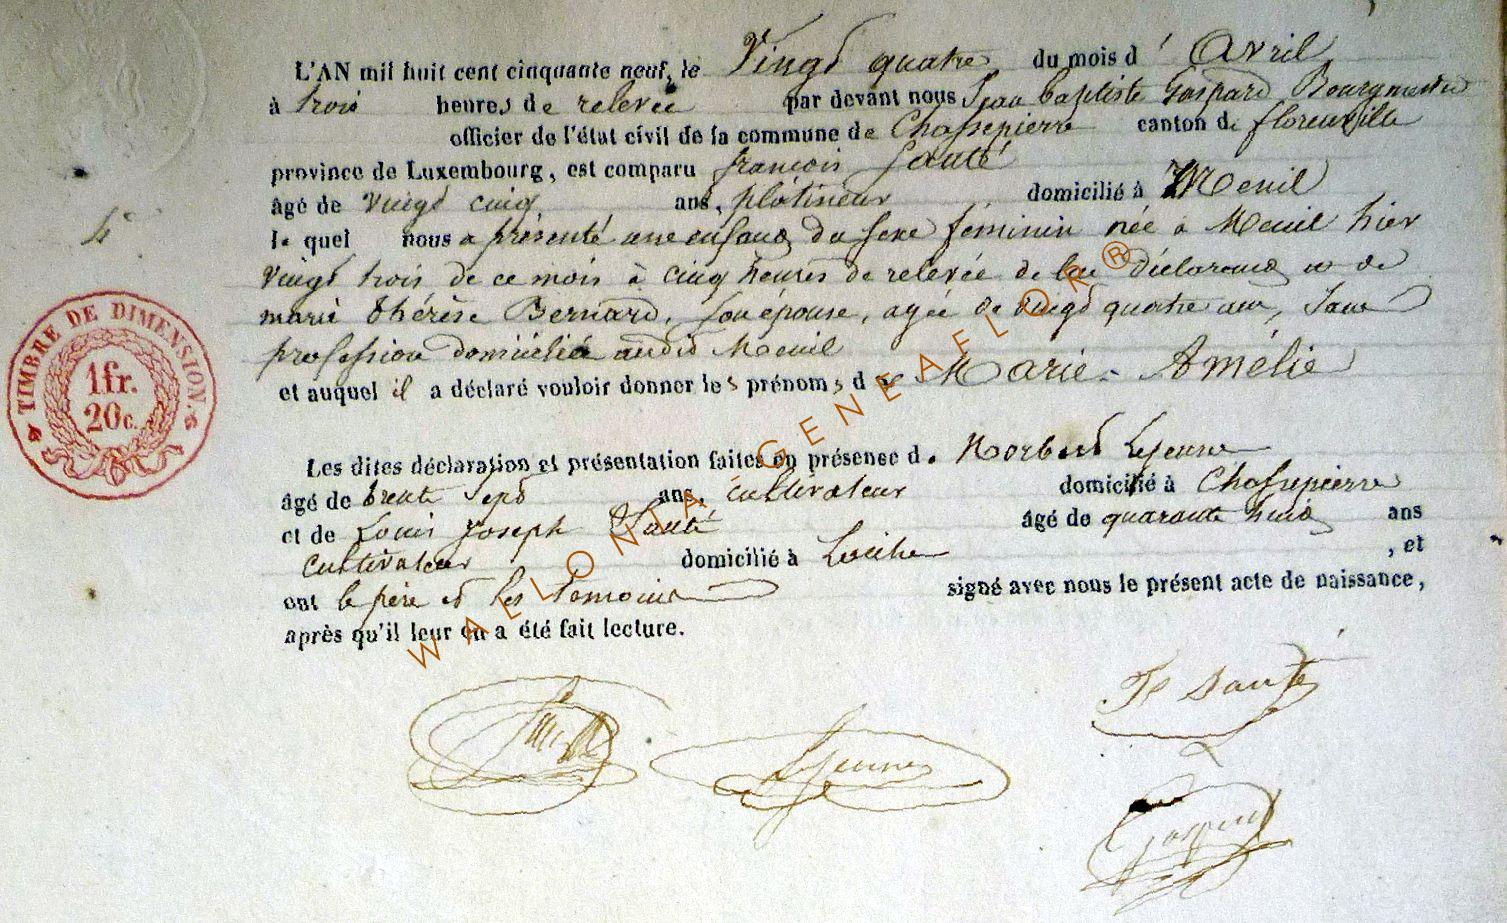 L'AN mil huit cent cinquante neuf, le Vingt quatre du mois d' Avril
à trois heures de relevée par devant nous Jean baptiste Gaspard Bourgmestre
officier de l'état civil de la commune de Chassepierre canton de florenville
province de Luxembourg, est comparu françois Santé
âgé de vingt cinq ans, plâtineur domicilié à Menil
le quel nous a présenté une enfant du sexe féminin née à Menil hier
vingt trois de ce mois à cinq heures de relevée de lui déclarant et de
marie thérèse Bernard, son épouse, agée de vingt quatre ans, sans
profession domiciliée audit Menil
et auquel il a déclaré vouloir donner les prénoms de Marie - Amélie
4
TIMBRE DE DIMENSION.
1fr.
20c.
Les dites déclaration et présentation faites en présence de Norbert Lejeune
âgé de trente sept ans, cultivateur domicilié à Chassepierre
et de Louis Joseph Santé âgé de quarante huit ans
cultivateur domicilié à , et
ont le père et les témoins signé avec nous le présent acte de naissance,
après qu'il leur en a été fait lecture.
WALLONIA GENEAFLOR®
Santé
Lejeune
Gaspard